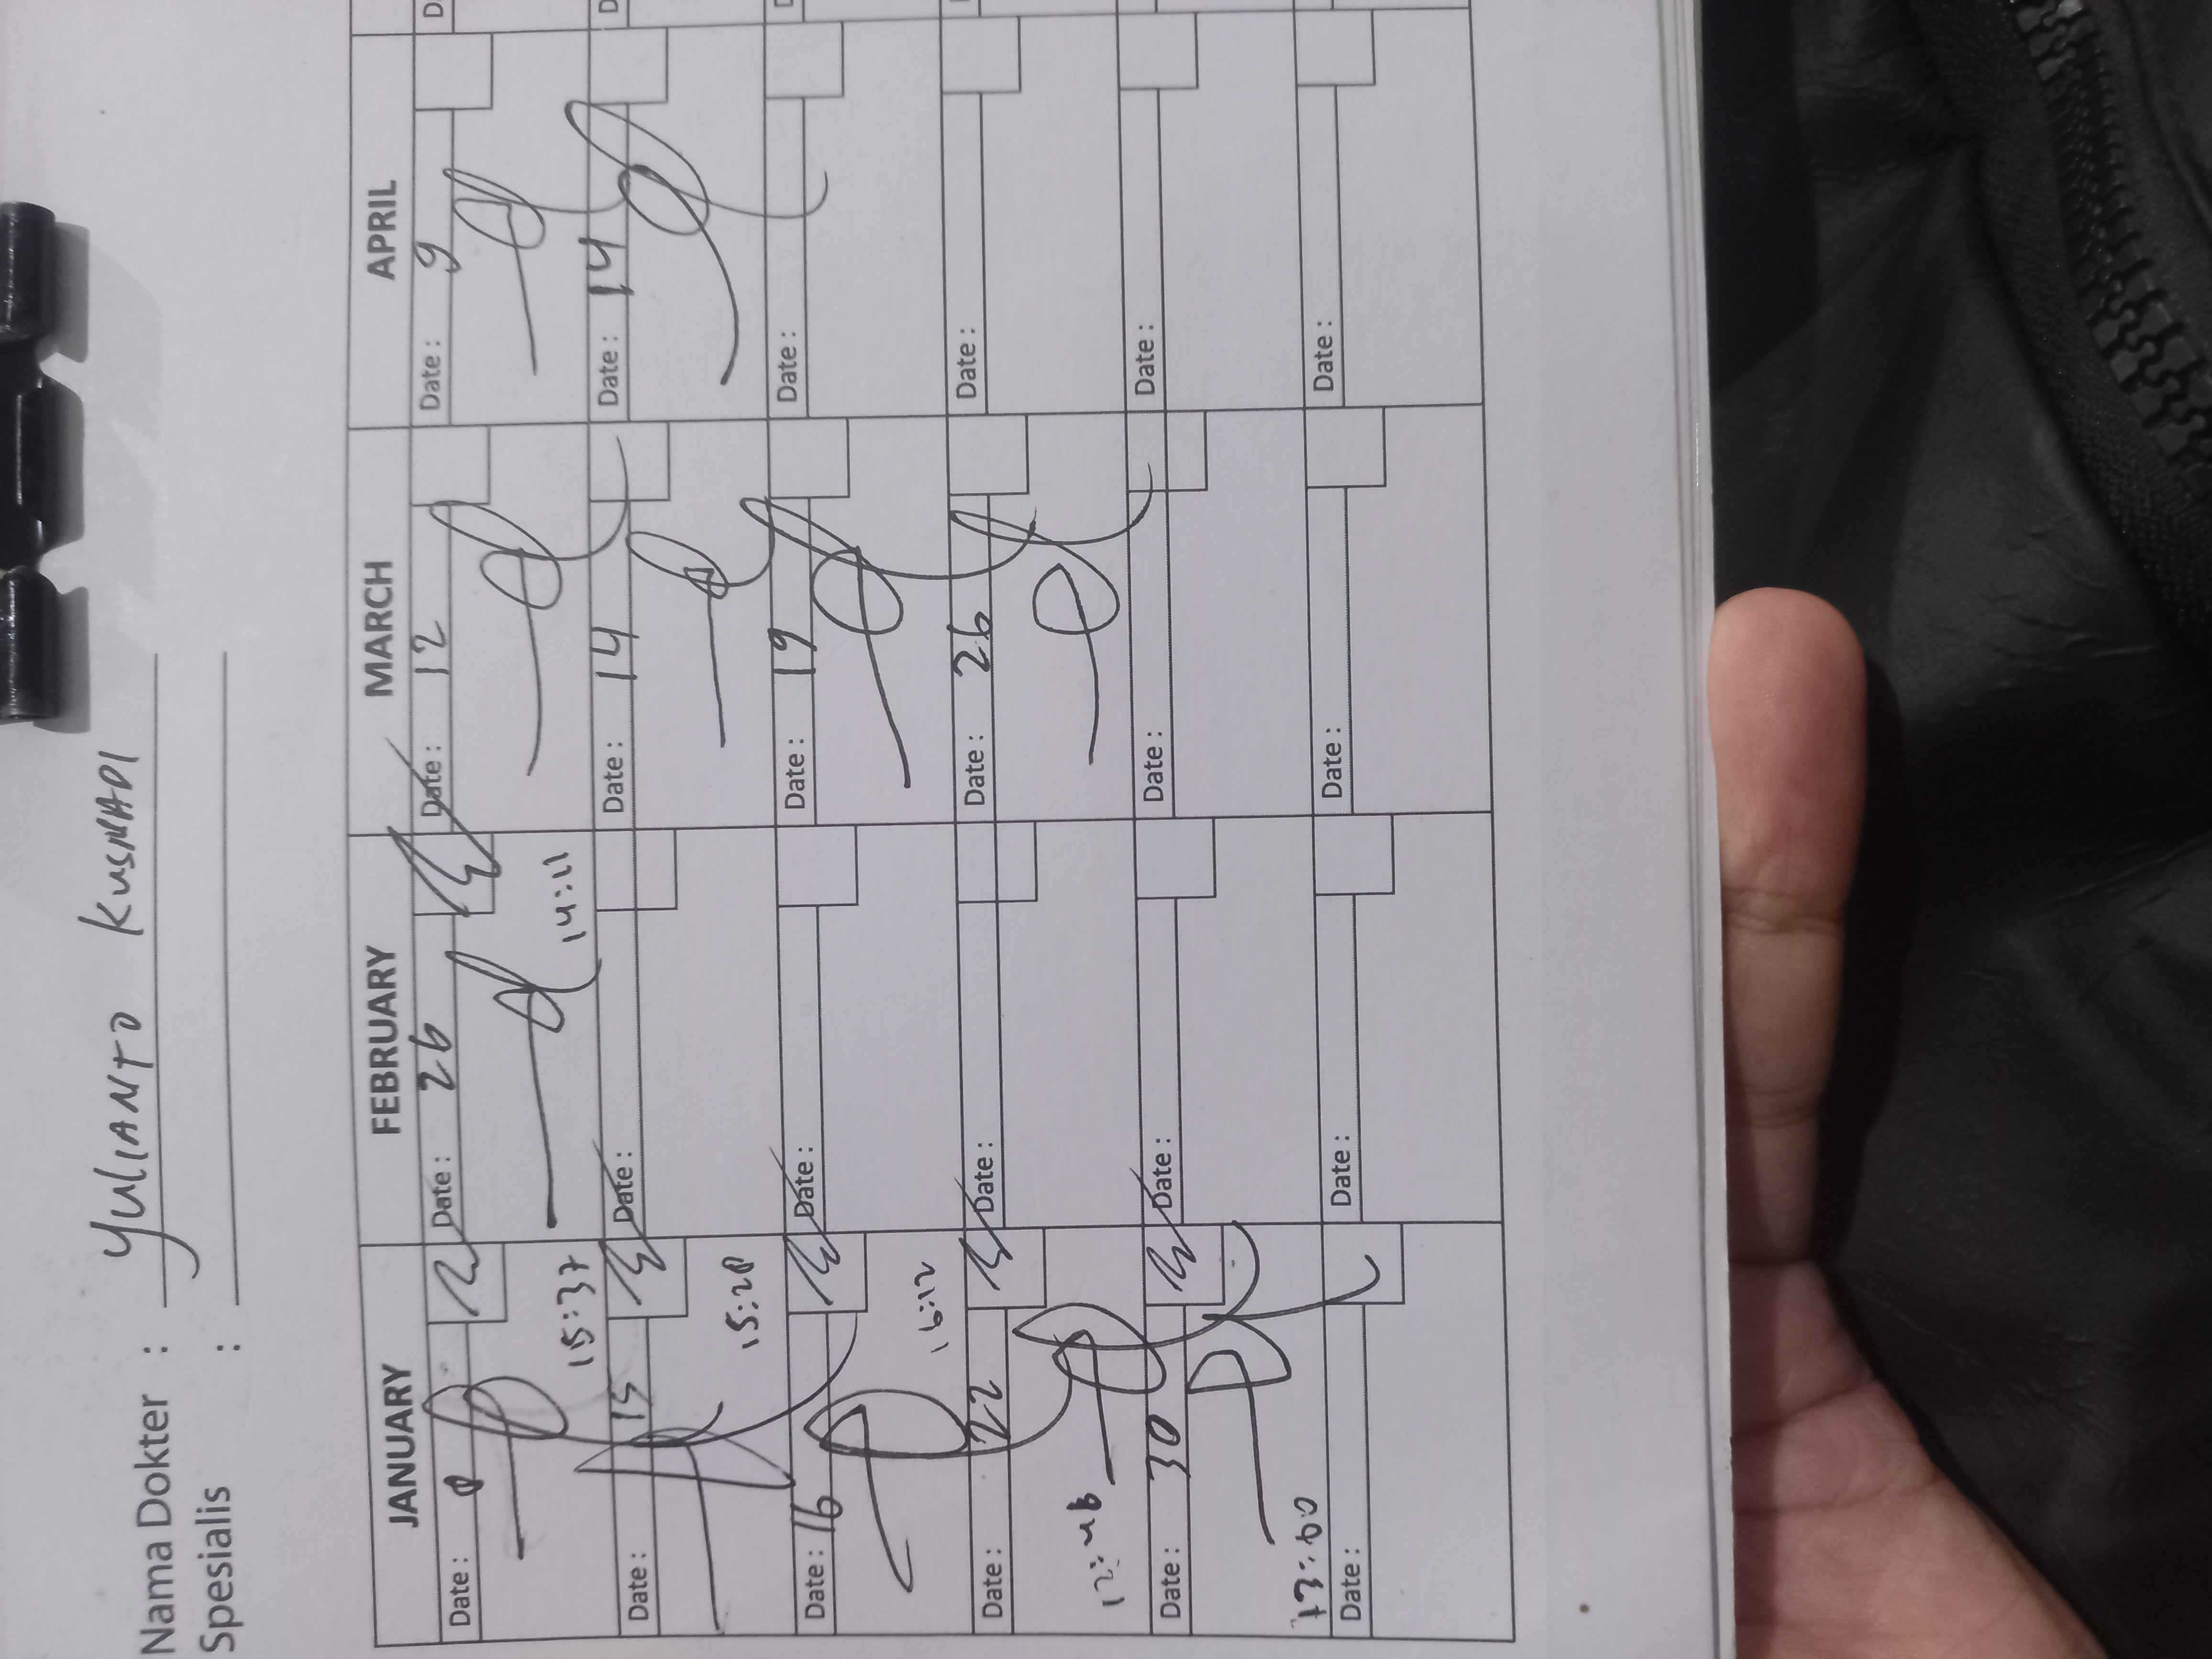 Nama Dokter : YULIANTO KUSNADI
Spesialis :
JANUARY FEBRUARY MARCH APRIL
Date : 8 Date : 26 Date : 12 Date : 9
15:37 14:11
Date : 15 Date : Date : 14 Date : 14
15:28
Date : 16 Date : Date : 19 Date :
16:12
Date : 22 Date : Date : 26 Date :
12:46
Date : 30 Date : Date : Date :
Date : Date : Date : Date :